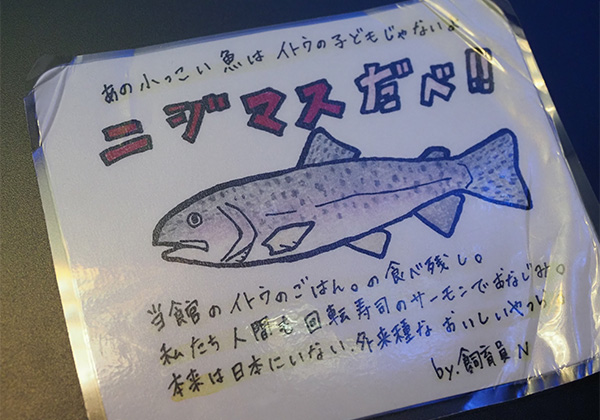 あの小っこい魚は イトウの子どもじゃないよ
ニジマスだべ!!
当館のイトウのごはん。の食べ残し。
私たち人間も回転寿司のサーモンでおなじみ。
本来は日本にいない、外来種な おいしいやつら
by.飼育員N